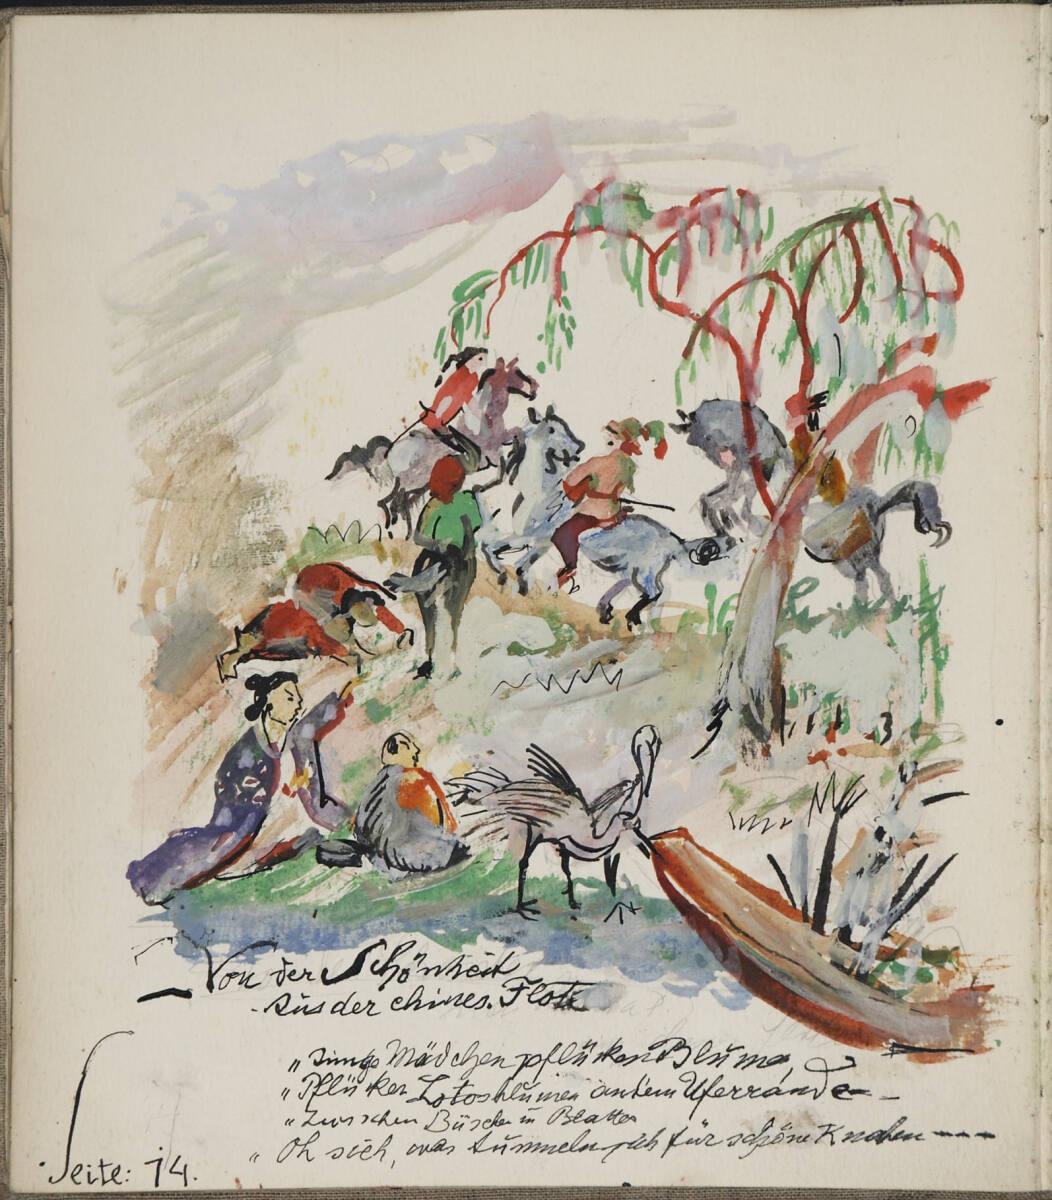 Von der Schönheit
Aus der chines. Flöte
„Junge Mädchen pflücken Blume,
„Pflücken Lotosblumen an dem Uferrande –
„Zwischen Büschen u Blätter
„Oh sieh, was tummeln sich für schöne Knaben ----
Seite: 14.